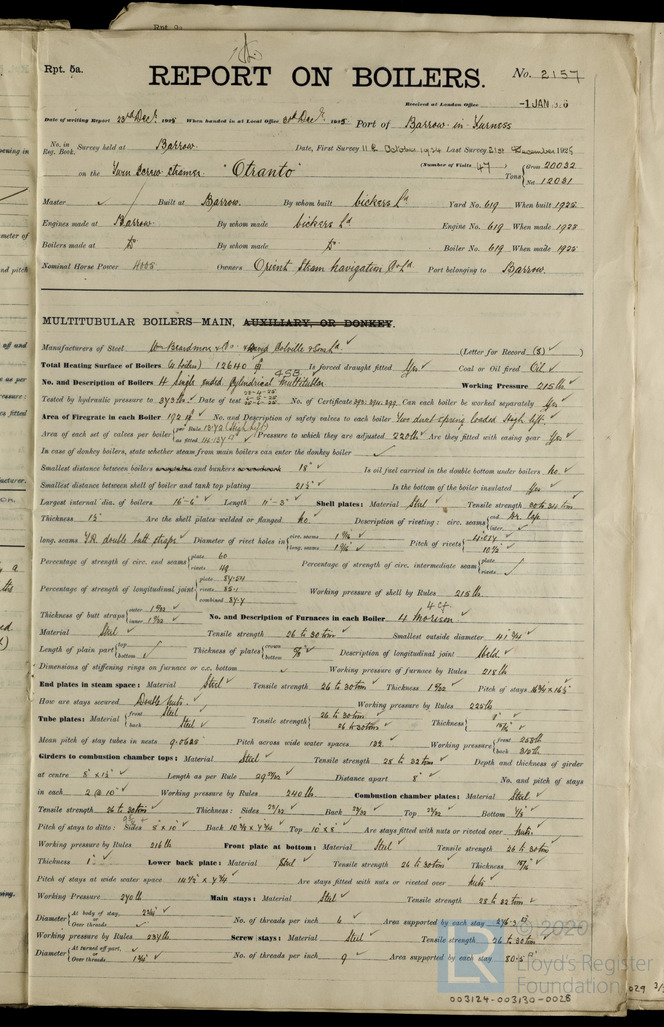 Rpt. 5a.
REPORT ON BOILERS.
No. 2157
Received at London Office -1 JAN
Date of writing Report 23rd Decr. 1925 When handed in at Local Office 30th Decr. 1925 Port of Barrow-in-Furness
No. in Reg. Book. Survey held at Barrow. Date, First Survey October 1924 Last Survey 21st December 1925
(Number of Visits 47)
on the Twin Screw steamer "Otranto" Tons Gross 20032 Net 12031
Master Built at Barrow. By whom built Vickers Ld Yard No. 619 When built 1925
Engines made at Barrow By whom made Vickers Ld Engine No. 619 When made 1925
Boilers made at do By whom made do Boiler No. 619 When made 1925
Nominal Horse Power Owners Orient Steam Navigation Co Ld. Port belonging to Barrow.
MULTITUBULAR BOILERS MAIN, AUXILIARY, OR DONKEY.
Manufacturers of Steel Wm Beardmore & Co & David Colville & Sons Ld. (Letter for Record (S))
Total Heating Surface of Boilers (6 boilers) 12640 Is forced draught fitted Yes Coal or Oil fired Oil
No. and Description of Boilers 4 Single ended Cylindrical Multitubular 4SB Working Pressure 215 lb
Tested by hydraulic pressure to 373 lbs. Date of test No. of Certificate Can each boiler be worked separately Yes
Area of Firegrate in each Boiler 192 No. and Description of safety valves to each boiler Two direct spring loaded High lift.
Area of each set of valves per boiler per Rule as fitted Pressure to which they are adjusted 220 lb Are they fitted with easing gear Yes
In case of donkey boilers, state whether steam from main boilers can enter the donkey boiler
Smallest distance between boilers or uptakes and bunkers or woodwork 18" Is oil fuel carried in the double bottom under boilers No.
Smallest distance between shell of boiler and tank top plating 21½" Is the bottom of the boiler insulated Yes
Largest internal dia. of boilers 16'-6" Length 11'-3" Shell plates: Material Steel Tensile strength
Thickness Are the shell plates welded or flanged No. Description of riveting: circ. seams end inter.
long. seams T.R. double butt straps Diameter of rivet holes in circ. seams long. seams Pitch of rivets
Percentage of strength of circ. end seams plate 60 rivets 49 Percentage of strength of circ. intermediate seam plate rivets
Percentage of strength of longitudinal joint plate rivets 85.1 combined Working pressure of shell by Rules 215 lb
Thickness of butt straps outer inner No. and Description of Furnaces in each Boiler 4 Morison 4 cf
Material Steel Tensile strength 26 to 30 tons Smallest outside diameter
Length of plain part top bottom Thickness of plates crown bottom Description of longitudinal joint Weld
Dimensions of stiffening rings on furnace or c.c. bottom Working pressure of furnace by Rules 218 lb
End plates in steam space: Material Steel Tensile strength 26 to 30 tons Thickness 1 9/32 Pitch of stays
How are stays secured Double nuts. Working pressure by Rules 225 lb
Tube plates: Material front Steel back Steel Tensile strength 26 to 30 tons 26 to 30 tons Thickness
Mean pitch of stay tubes in nests 9.0625 Pitch across wide water spaces Working pressure front back
Girders to combustion chamber tops: Material Steel Tensile strength 28 to 32 tons Depth and thickness of girder
at centre Length as per Rule 29 Distance apart 8" No. and pitch of stays
in each 2 @ 10" Working pressure by Rules 240 lb Combustion chamber plates: Material Steel
Tensile strength 26 to 30 tons Thickness: Sides 23/32 Back 23/32 Top 23/32 Bottom
Pitch of stays to ditto: Sides Back Top 10" x 8" Are stays fitted with nuts or riveted over Nuts
Working pressure by Rules 216 lb Front plate at bottom: Material Steel Tensile strength 26 to 30 tons
Thickness 1" Lower back plate: Material Steel Tensile strength 26 to 30 tons Thickness 15/16
Pitch of stays at wide water space Are stays fitted with nuts or riveted over Nuts
Working Pressure 240 lb Main stays: Material Steel Tensile strength 28 to 32 tons
Diameter At body of stay, or Over threads No. of threads per inch 6 Area supported by each stay
Working pressure by Rules Screw stays: Material Steel Tensile strength 26 to 30 tons
Diameter At turned off part, or Over threads No. of threads per inch 9 Area supported by each stay
© 2020
LR
Lloyd's Register
Foundation
003124-003130-0028